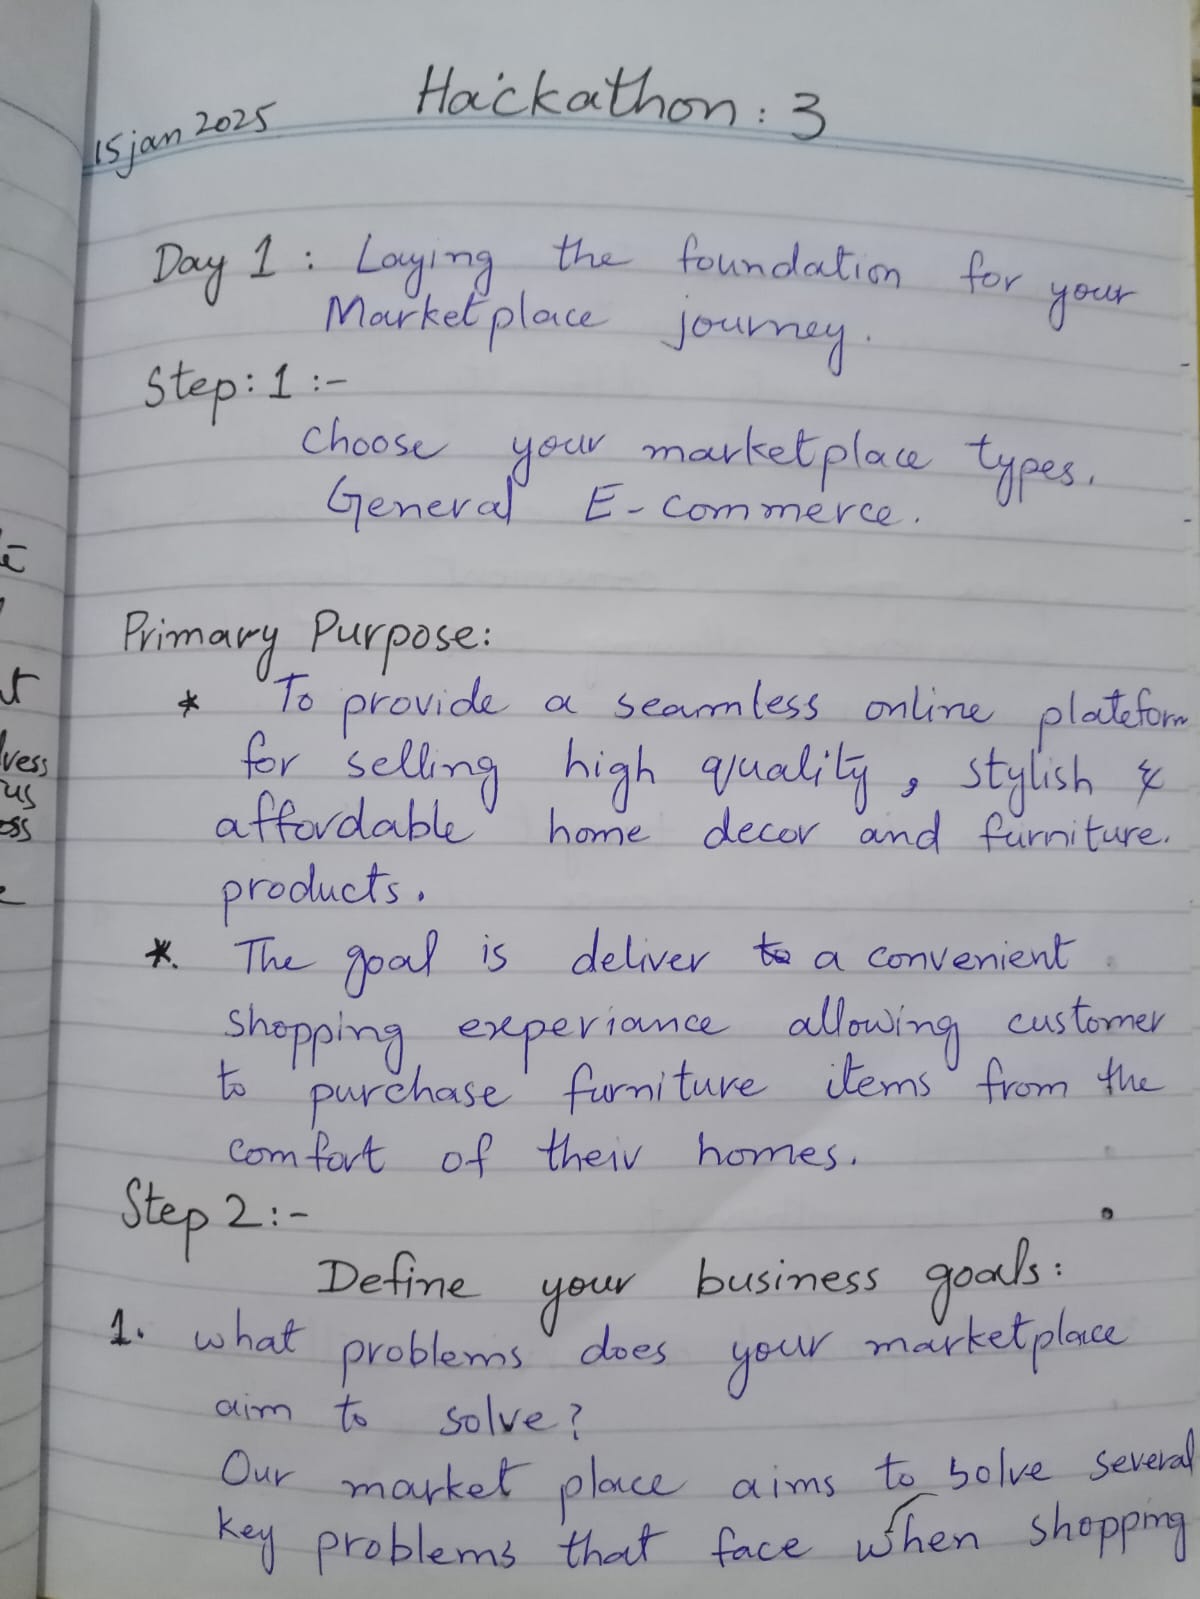 Hackathon: 3
15 jan 2025
Day 1 : Laying the foundation for your
Marketplace journey.
Step: 1 :-
Choose your marketplace types.
General E-commerce.
Primary Purpose:
* To provide a seamless online plateform
for selling high quality, stylish &
affordable home decor and furniture.
products.
*. The goal is deliver to a convenient
shopping experiance allowing customer
to purchase furniture items from the
comfort of their homes.
Step 2:-
Define your business goals:
1. what problems does your marketplace
aim to solve?
Our market place aims to solve several
key problems that face when shopping
ē
t
us
oss
e